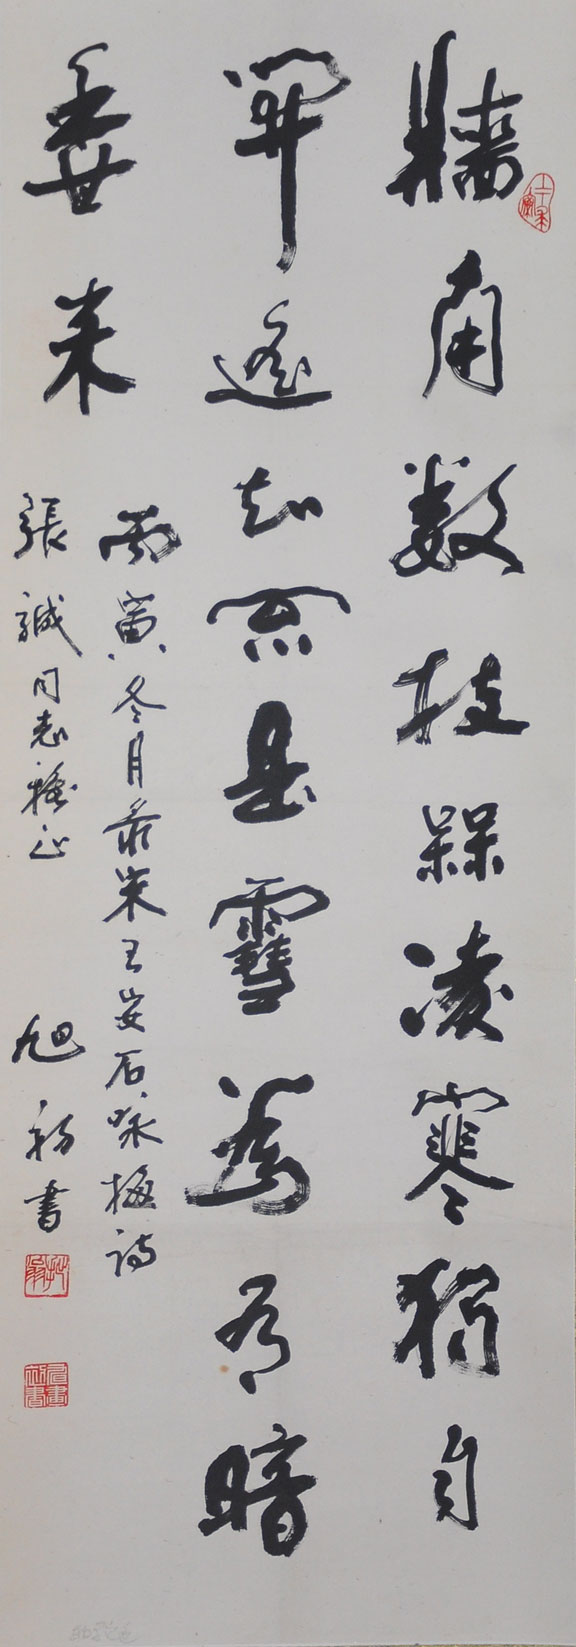 牆角数枝槑凌寒獨自
開遙知不是雪為有暗
香来
丙寅冬月录宋王安石咏梅诗
張誠同志雅正 旭初書